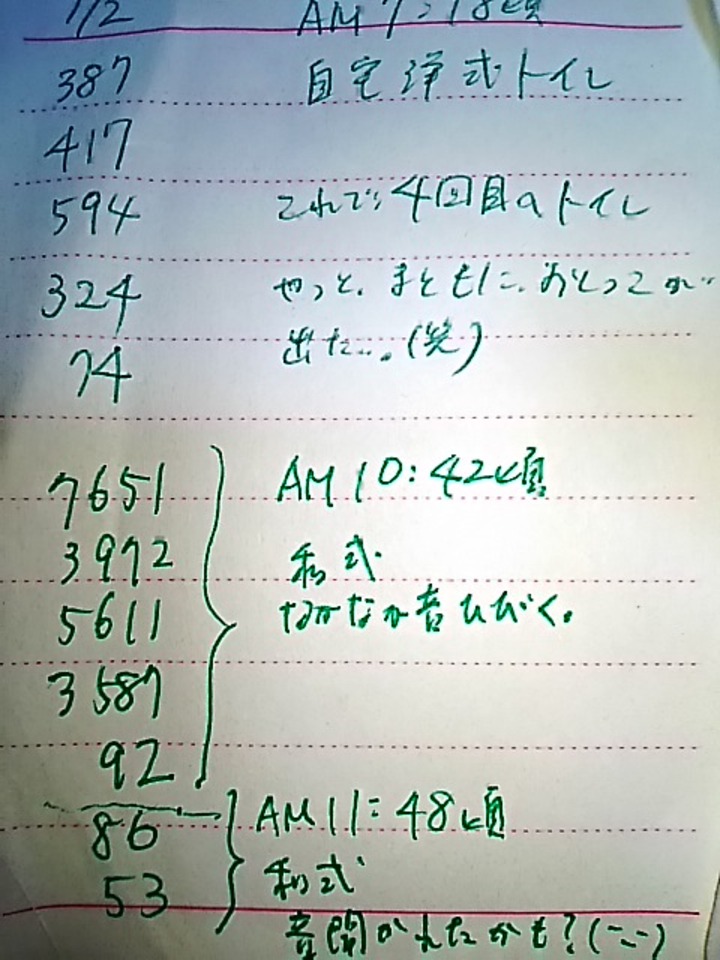 1/2 AM 7:18頃
387 自宅洋式トイレ
417
594 これで、4回目のトイレ
324 やっと、まともに、おとっこが
出た…(笑)
74
7651 AM 10:42頃
3972 和式
5611 なかなか音ひびく。
3587
92
86 AM 11:48頃
53 和式
音聞かれたかも?(--)